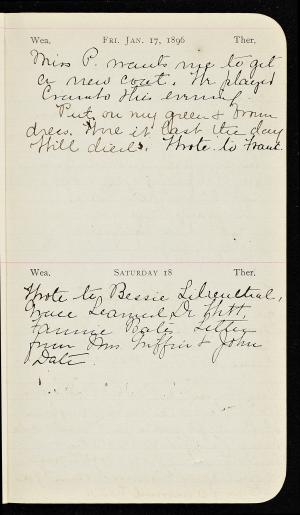 Wea. FRI. JAN. 17, 1896 Ther.
Miss P. wants me to get
a new coat. We played
Crambo this evening.
Put on my green & brown
dress. Wore it last the day
Will died. Wrote to Frank.
Wea. SATURDAY 18 Ther.
Wrote to Bessie Lilienthal,
Grace Learned, Dr.
Fannie Bates. Letter
from Mrs Griffin & John
Date.